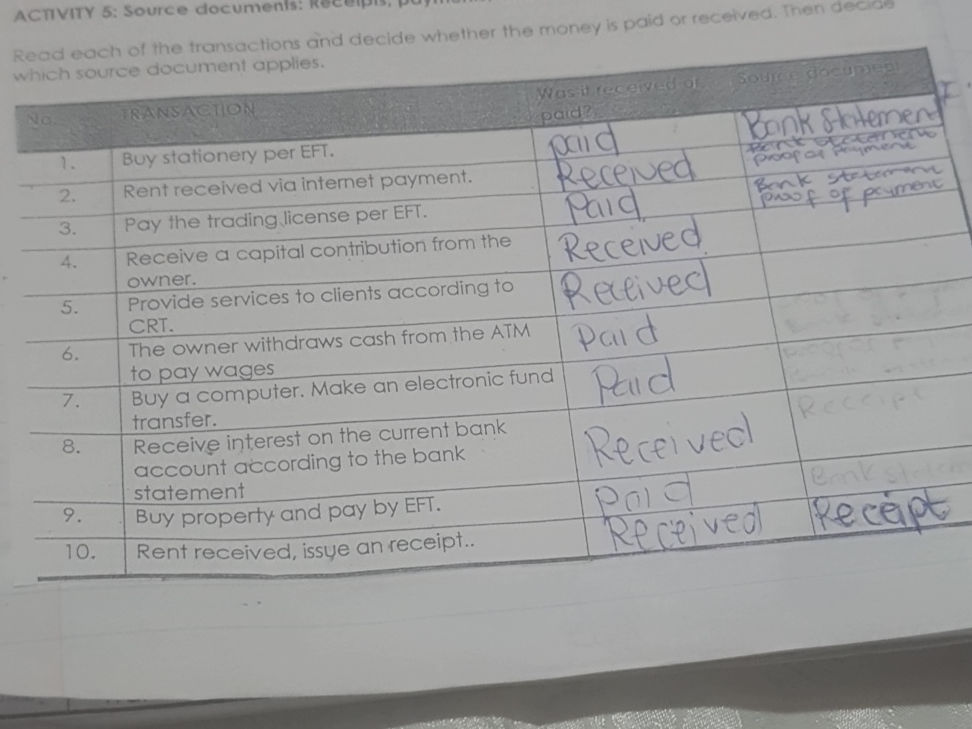 ACTIVITY 5: Source documents: Receipts,
Read each of the transactions and decide whether the money is paid or received. Then decide
which source document applies.
No. TRANSACTION Was it received or paid? Source document
1. Buy stationery per EFT. paid Bank Statement
2. Rent received via internet payment. Received Bank statement
proof of payment
3. Pay the trading license per EFT. Paid Bank statement
proof of payment
4. Receive a capital contribution from the Received
owner.
5. Provide services to clients according to Received
CRT.
6. The owner withdraws cash from the ATM Paid
to pay wages
7. Buy a computer. Make an electronic fund Paid
transfer.
8. Receive interest on the current bank Received Receipt
account according to the bank
statement
9. Buy property and pay by EFT. Paid Bank
10. Rent received, issye an receipt.. Received Receipt